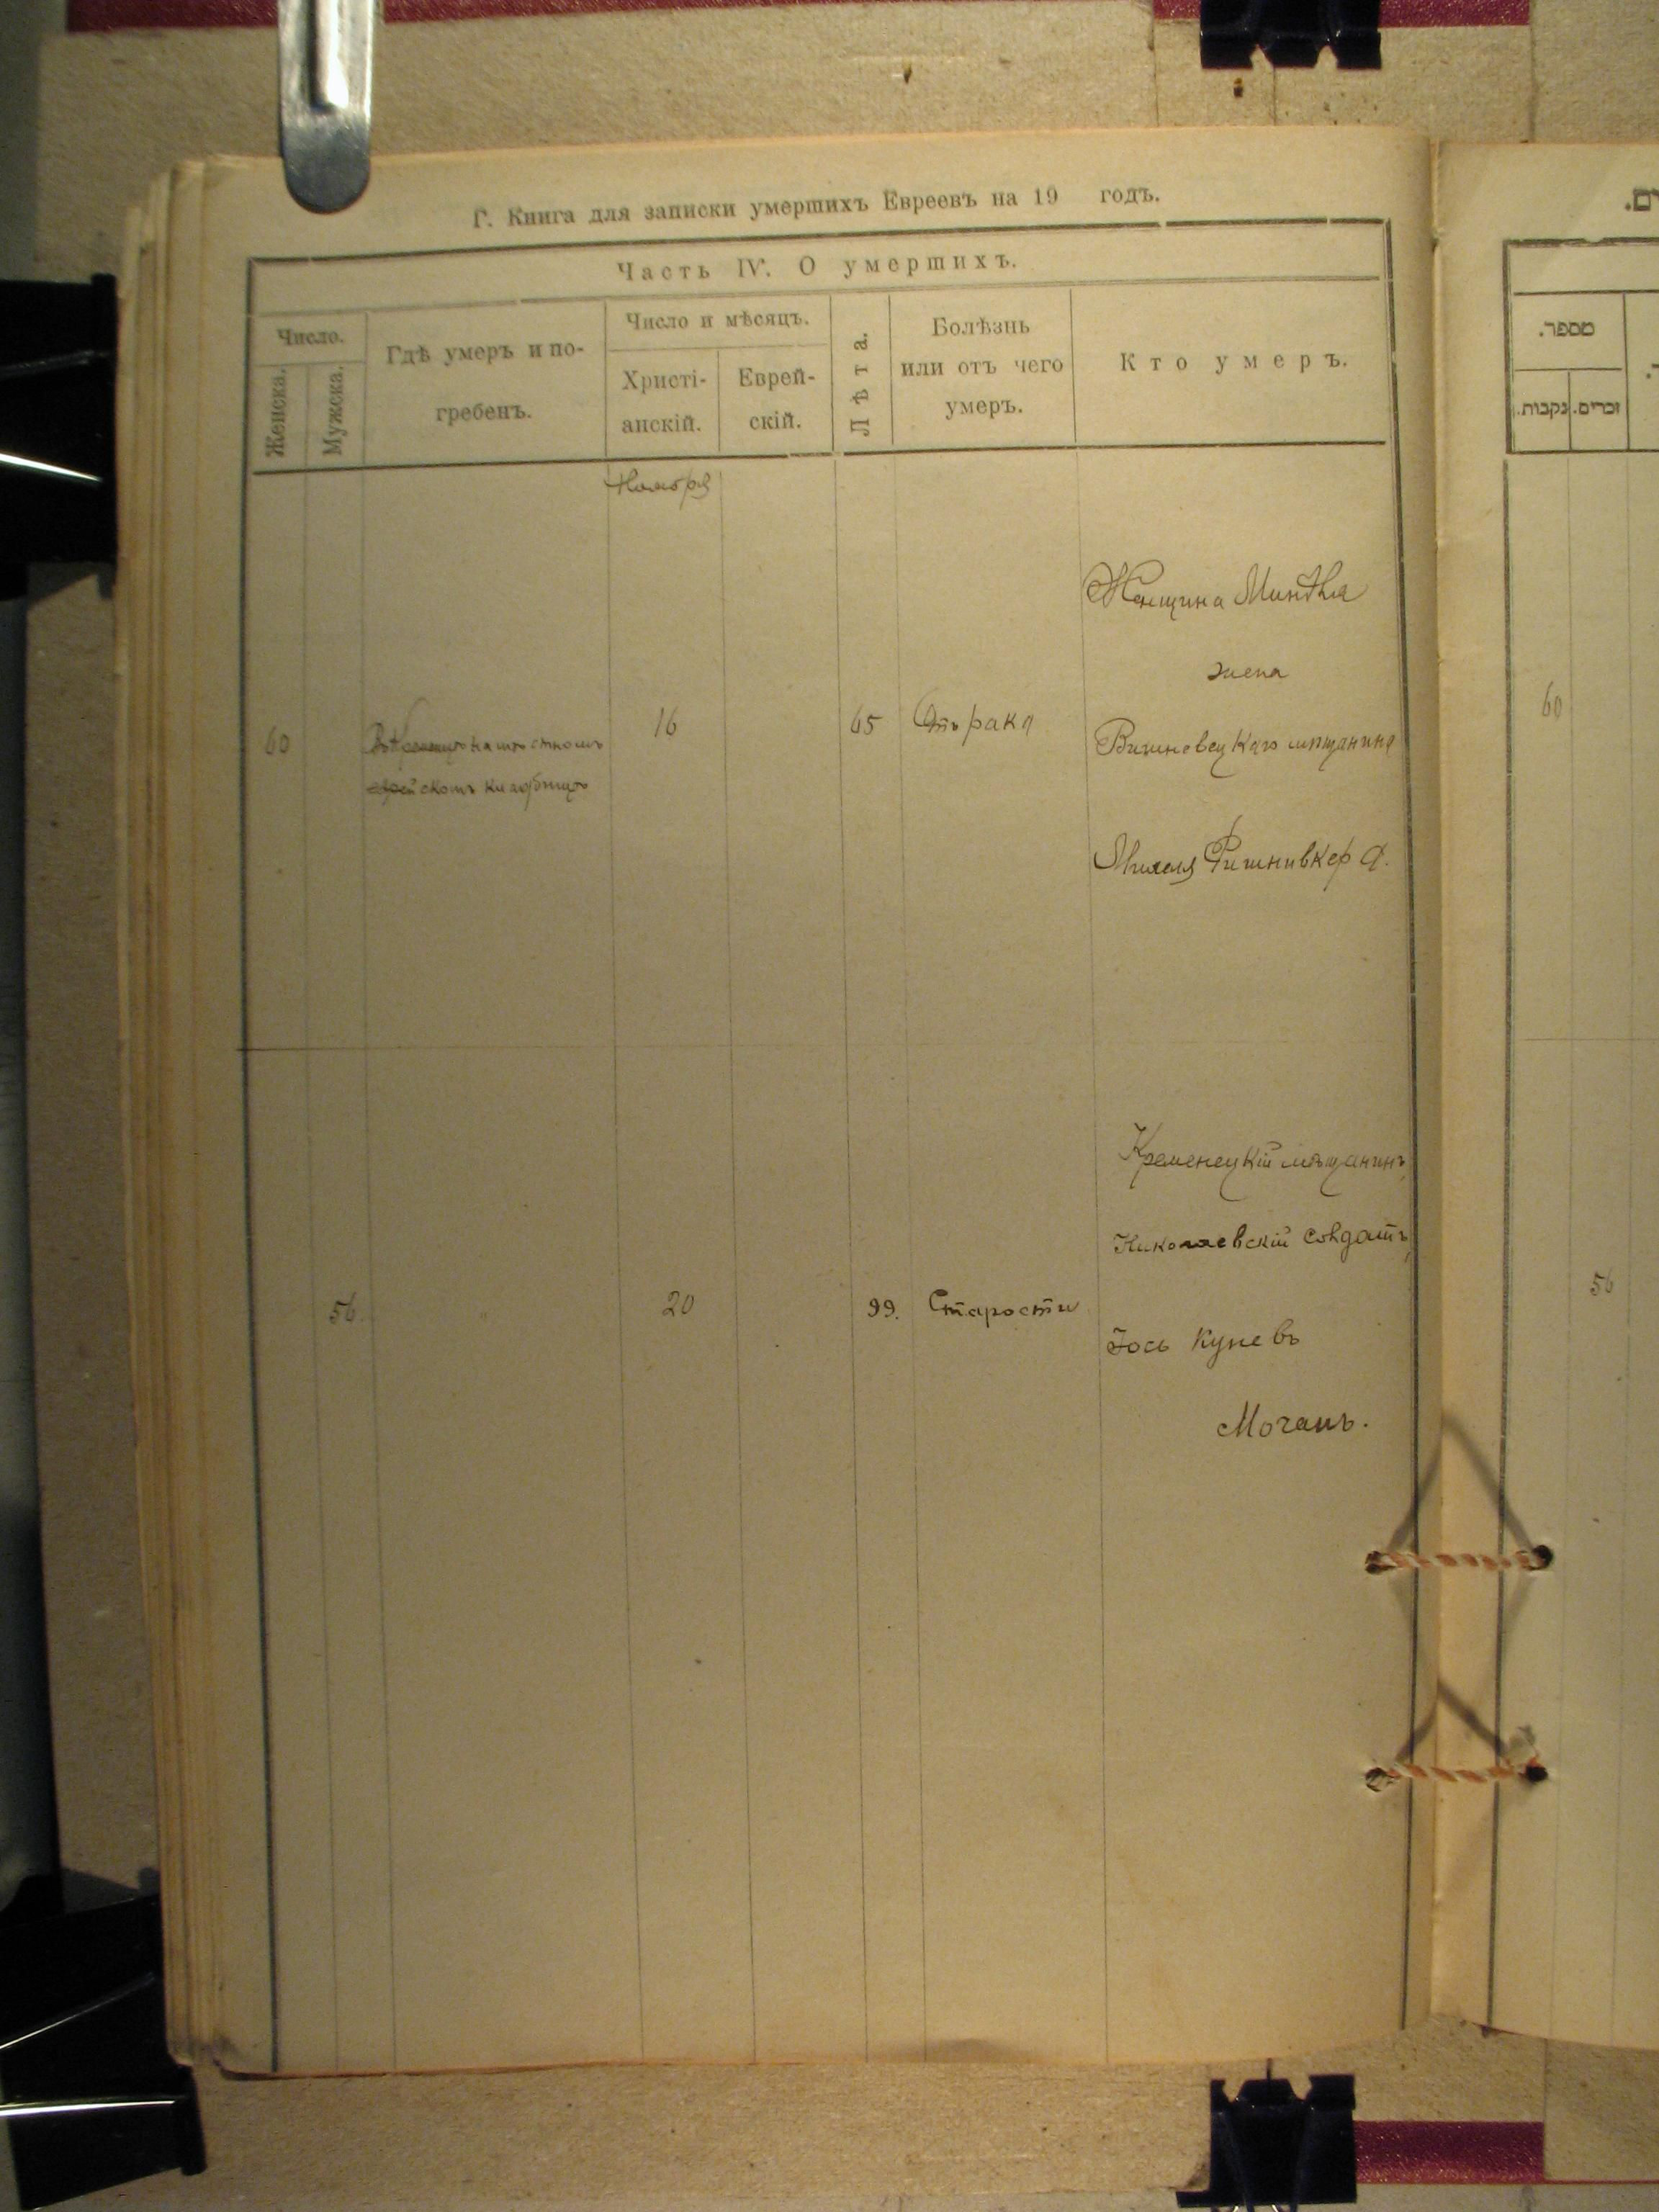 Г. Книга для записки умершихъ Евреевъ на 19 годъ.
Часть IV. О умершихъ.
Число.
Женска.
Мужска.
Гдѣ умеръ и по-
гребенъ.
Число и мѣсяцъ.
Христі-
анскій.
Еврей-
скій.
Лѣта.
Болѣзнь
или отъ чего
умеръ.
Кто умеръ.
Ноября
60
Въ Кременцѣ на мѣстномъ
еврейскомъ кладбищѣ
16
65
Отъ рака
Женщина Миндля
жена
Вишневецкаго мѣщанина
Михеля Фишнивкера.
56
"
20
99.
Старости
Кременецкій мѣщанинъ,
Николаевскій солдатъ,
Іось Куневъ
Мочанъ.
מספר.
נקבות.
זכרים.
60
56